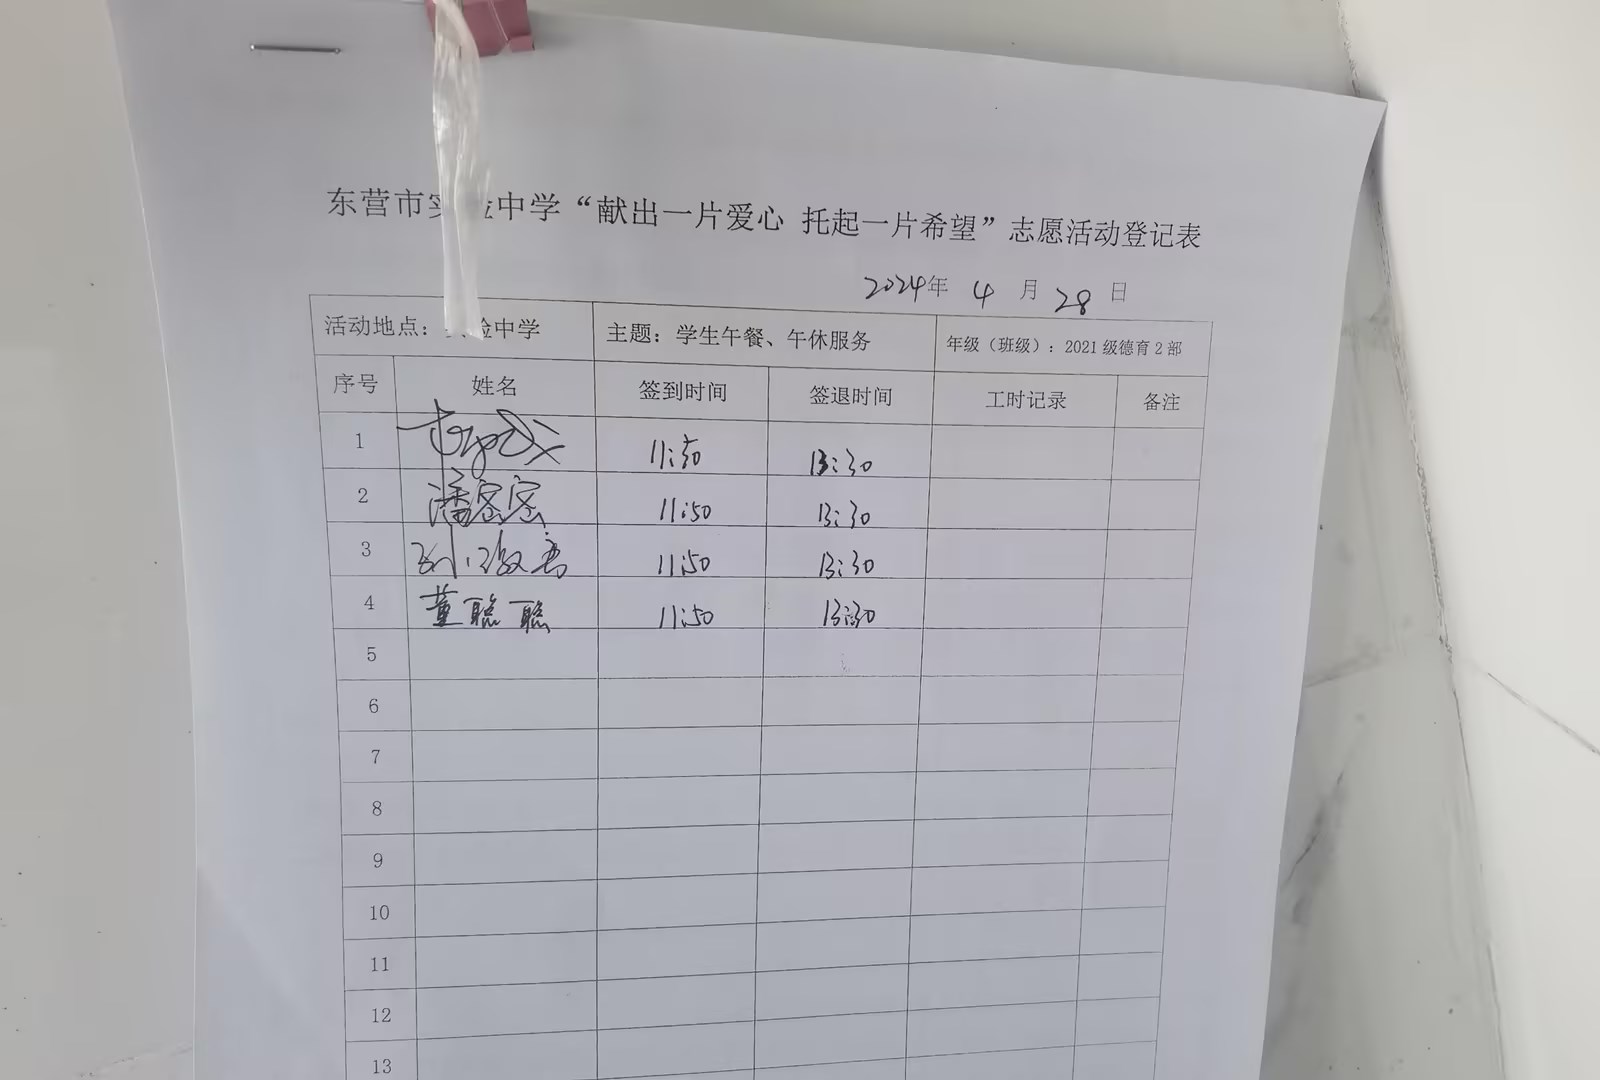 东营市实验中学“献出一片爱心 托起一片希望”志愿活动登记表
2024年 4 月 28 日
活动地点：实验中学 主题：学生午餐、午休服务 年级（班级）：2021级德育2部
序号 姓名 签到时间 签退时间 工时记录 备注
1 11:50 13:30
2 潘密密 11:50 13:30
3 11:50 13:30
4 董聪聪 11:50 13:30
5
6
7
8
9
10
11
12
13